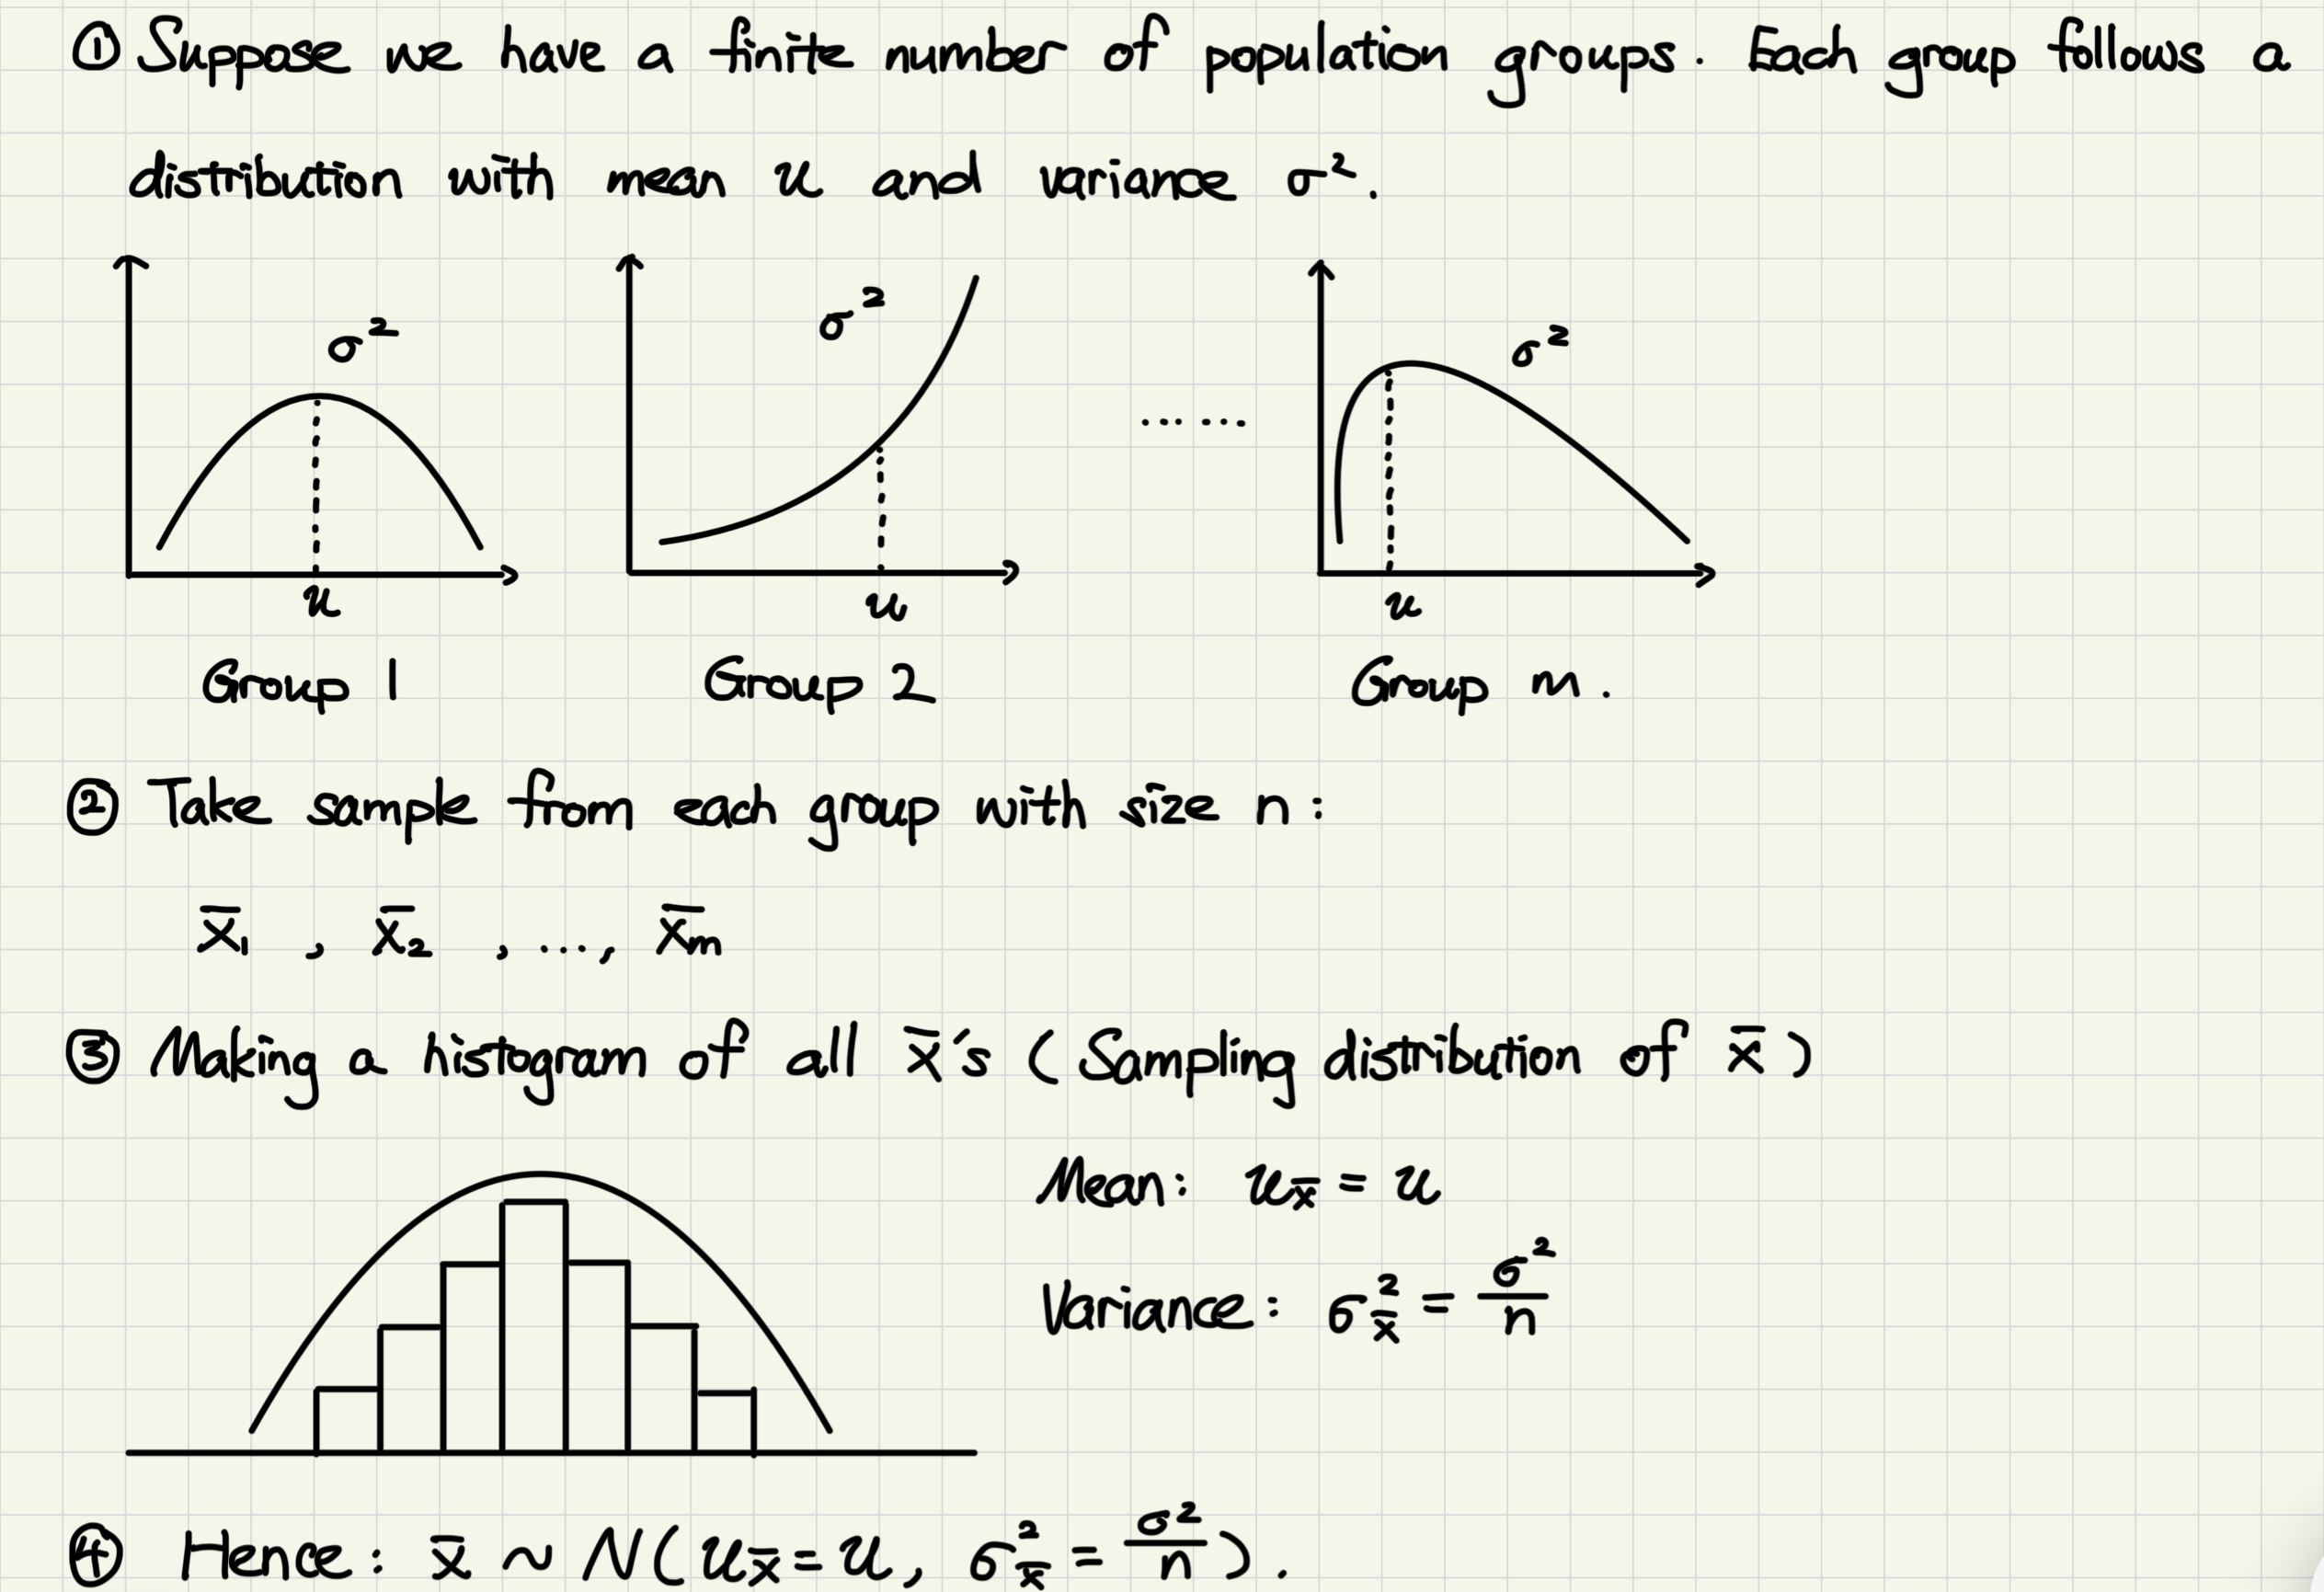 ① Suppose we have a finite number of population groups. Each group follows a
distribution with mean u and variance σ².
σ² σ² ...... σ²
u u u
Group 1 Group 2 Group m.
② Take sample from each group with size n:
x̄₁ , x̄₂ , ..., x̄m
③ Making a histogram of all x̄'s (Sampling distribution of x̄)
Mean: u_x̄ = u
Variance: σ²_x̄ = σ²/n
④ Hence: x̄ ~ N(u_x̄ = u, σ²_x̄ = σ²/n).